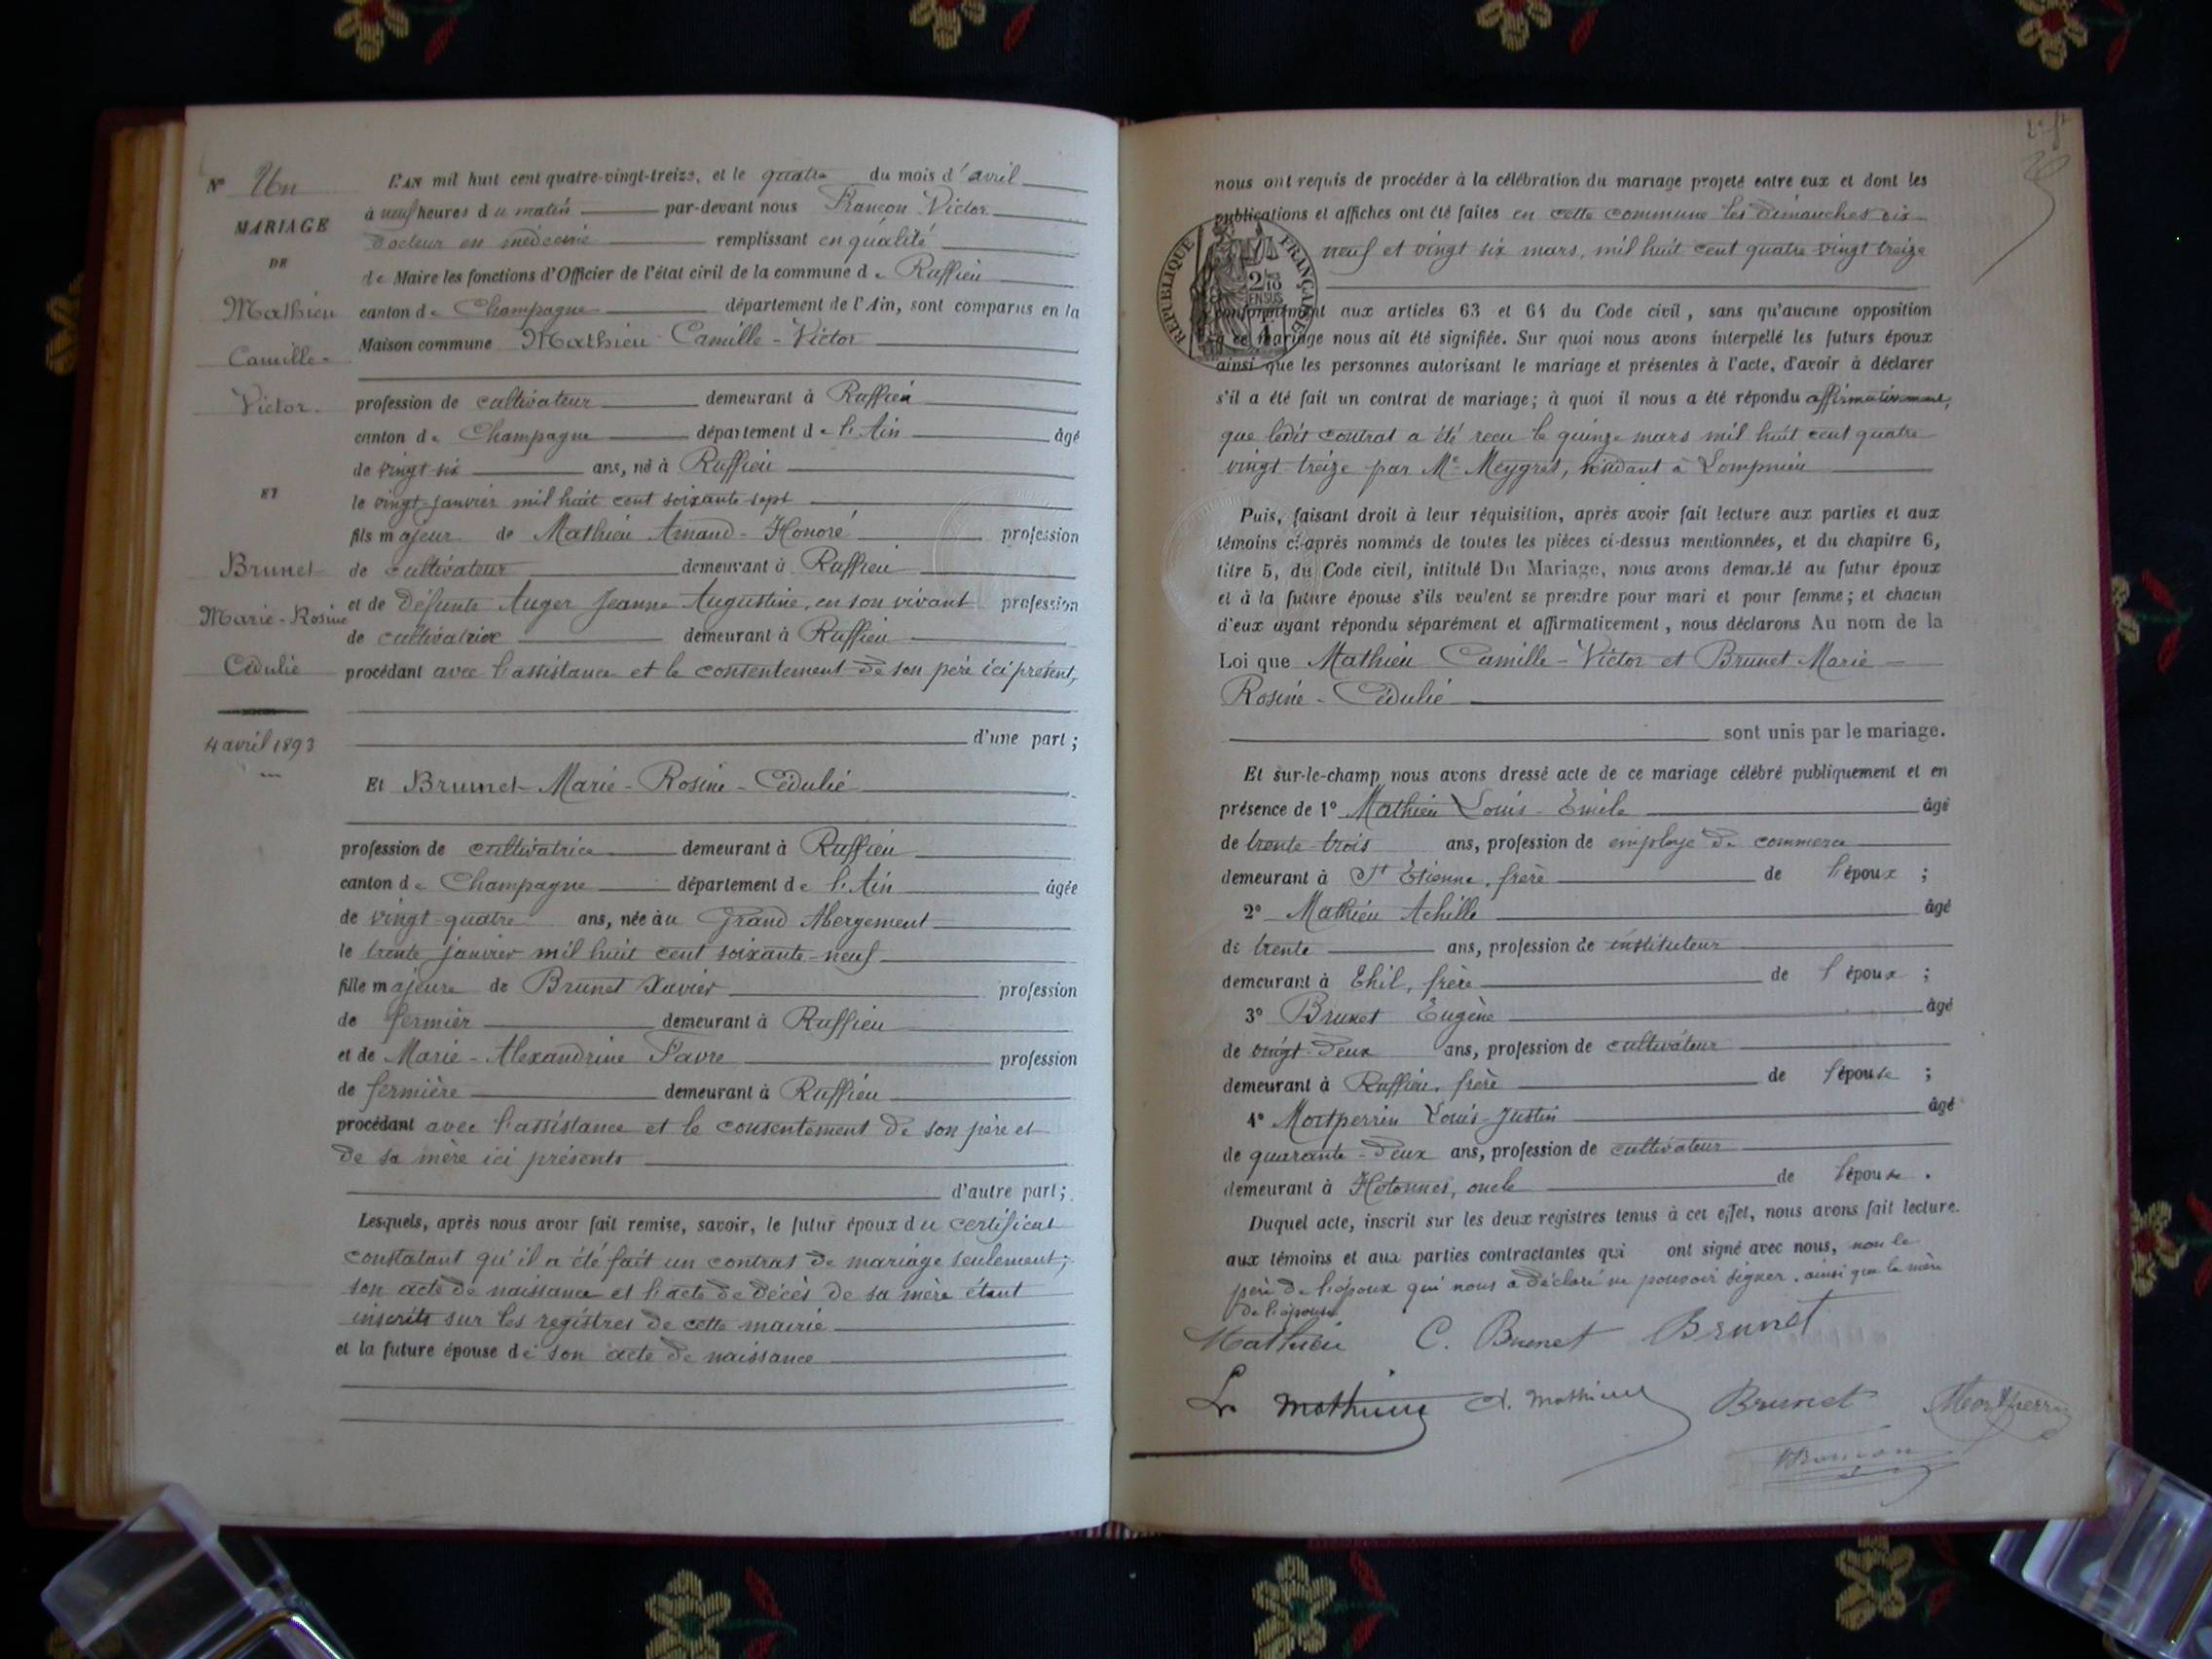 N° Un
MARIAGE
DE
Mathieu
Camille-
Victor.
ET
Brunet
Marie-Rosine
Cédulie
4 avril 1893
L'AN mil huit cent quatre-vingt-treize, et le quatre du mois d'avril
à neuf heures du matin par-devant nous Françon Victor
docteur en médecine remplissant en qualité
de Maire les fonctions d'Officier de l'état civil de la commune de Ruffieu
canton de Champagne département de l'Ain, sont comparus en la
Maison commune Mathieu Camille-Victor
profession de cultivateur demeurant à Ruffieu
canton de Champagne département de l'Ain âgé
de vingt-six ans, né à Ruffieu
le vingt janvier mil huit cent soixante-sept
fils majeur de Mathieu Amand-Honoré profession
de cultivateur demeurant à Ruffieu
et de défunte Auger Jeanne Augustine, en son vivant profession
de cultivatrice demeurant à Ruffieu
procédant avec l'assistance et le consentement de son père ici présent,
d'une part ;
Et Brunet Marie-Rosine-Cédulie
profession de cultivatrice demeurant à Ruffieu
canton de Champagne département de l'Ain âgée
de vingt-quatre ans, née au Grand Abergement
le trente janvier mil huit cent soixante-neuf
fille majeure de Brunet Xavier profession
de fermier demeurant à Ruffieu
et de Marie-Alexandrine Favre profession
de fermière demeurant à Ruffieu
procédant avec l'assistance et le consentement de son père et
de sa mère ici présents
d'autre part ;
Lesquels, après nous avoir fait remise, savoir, le futur époux du certificat
constatant qu'il a été fait un contrat de mariage seulement;
son acte de naissance et l'acte de décès de sa mère étant
inscrits sur les registres de cette mairie
et la future épouse de son acte de naissance
nous ont requis de procéder à la célébration du mariage projeté entre eux et dont les
publications et affiches ont été faites en cette commune les dimanches dix
neuf et vingt six mars, mil huit cent quatre vingt treize
RÉPUBLIQUE FRANÇAISE
2/10 EN SUS
conformément aux articles 63 et 64 du Code civil, sans qu'aucune opposition
à ce mariage nous ait été signifiée. Sur quoi nous avons interpellé les futurs époux
ainsi que les personnes autorisant le mariage et présentes à l'acte, d'avoir à déclarer
s'il a été fait un contrat de mariage; à quoi il nous a été répondu affirmativement,
que ledit contrat a été reçu le quinze mars mil huit cent quatre
vingt treize par Me Meygret, résidant à Lompnieu
Puis, faisant droit à leur réquisition, après avoir fait lecture aux parties et aux
témoins ci-après nommés de toutes les pièces ci-dessus mentionnées, et du chapitre 6,
titre 5, du Code civil, intitulé Du Mariage, nous avons demandé au futur époux
et à la future épouse s'ils veulent se prendre pour mari et pour femme; et chacun
d'eux ayant répondu séparément et affirmativement, nous déclarons Au nom de la
Loi que Mathieu Camille-Victor et Brunet Marie-
Rosine-Cédulie
sont unis par le mariage.
Et sur-le-champ nous avons dressé acte de ce mariage célébré publiquement et en
présence de 1° Mathieu Louis-Emile âgé
de trente-trois ans, profession de employé de commerce
demeurant à St Etienne, frère de l'époux ;
2° Mathieu Achille âgé
de trente ans, profession de instituteur
demeurant à Thil, frère de l'époux ;
3° Brunet Eugène âgé
de vingt-deux ans, profession de cultivateur
demeurant à Ruffieu, frère de l'épouse ;
4° Montperrin Louis-Justin âgé
de quarante-deux ans, profession de cultivateur
demeurant à Hotonnes, oncle de l'épouse.
Duquel acte, inscrit sur les deux registres tenus à cet effet, nous avons fait lecture
aux témoins et aux parties contractantes qui ont signé avec nous, non le
père de l'époux qui nous a déclaré ne pouvoir signer, ainsi que la mère
de l'épouse.
Mathieu C. Brunet Brunet
L. Mathieu A. Mathieu Brunet Montperrin